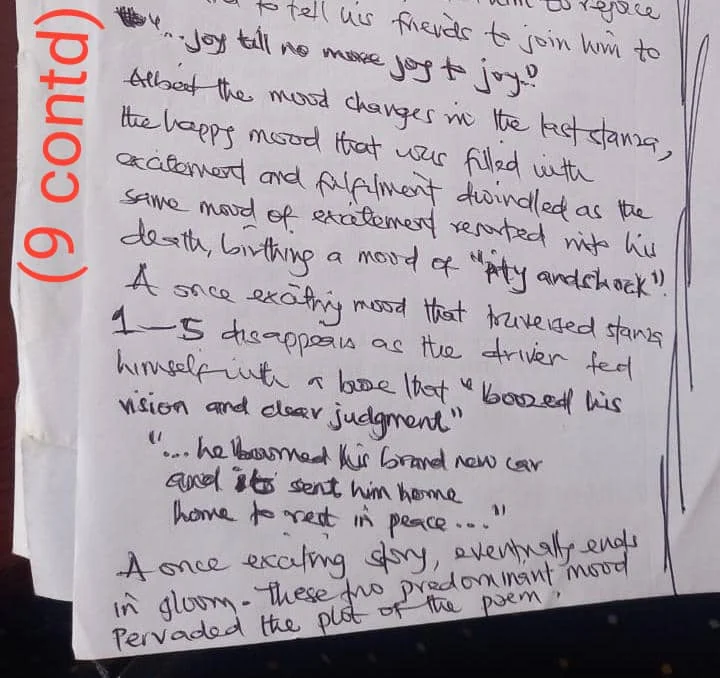 (9 contd)
to tell his friends to join him to
"... joy till no more joy to joy."
Albeit the mood changes in the last stanza,
the happy mood that was filled with
excitement and fulfilment dwindled as the
same mood of excitement resorted into his
death, birthing a mood of "pity and shock".
A once exciting mood that traversed stanza
1-5 disappears as the driver fed
himself with a booze that "boozed his
vision and clear judgment"
"... he boomed his brand new car
and it sent him home
home to rest in peace ..."
A once exciting story, eventually ends
in gloom. These two predominant mood
Pervaded the plot of the poem.